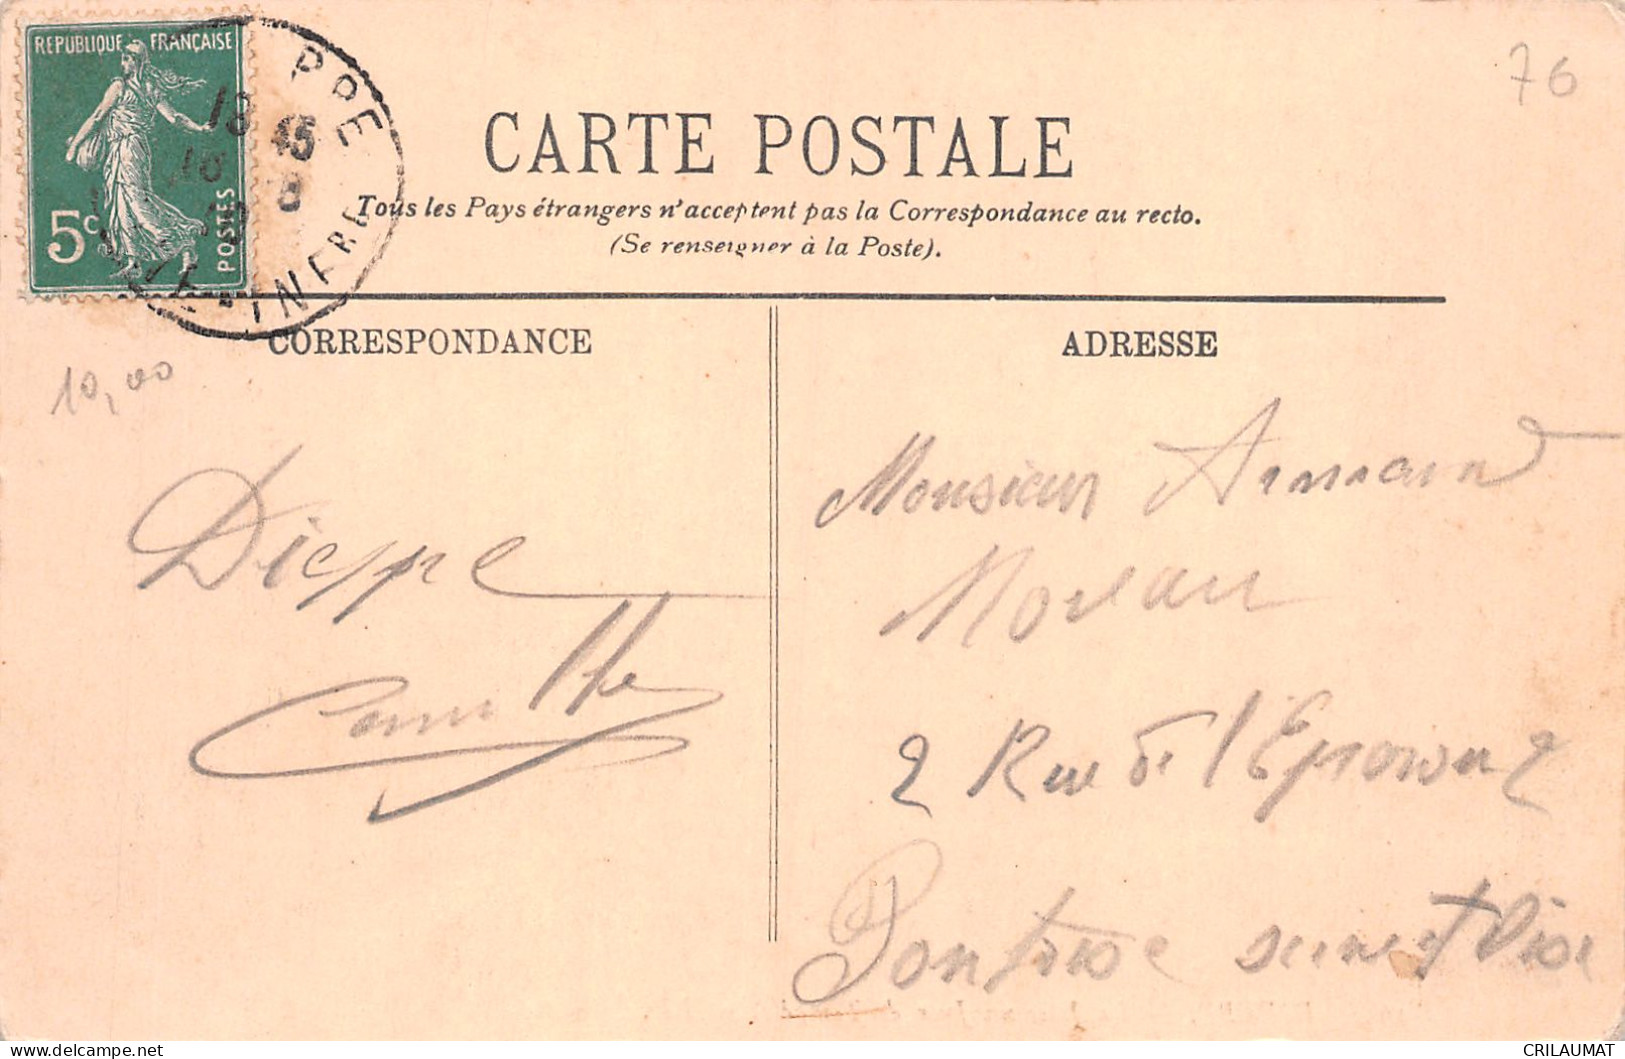 REPUBLIQUE FRANÇAISE
5c POSTES
PPE
18 45
16 8
INFRE
76
CARTE POSTALE
Tous les Pays étrangers n'acceptent pas la Correspondance au recto.
(Se renseigner à la Poste).
CORRESPONDANCE
ADRESSE
10,00
Dieppe
Camille
Monsieur Armand
Moreau
2 Rue de l'Eperon
Pontoise seine et Oise
CRILAUMAT